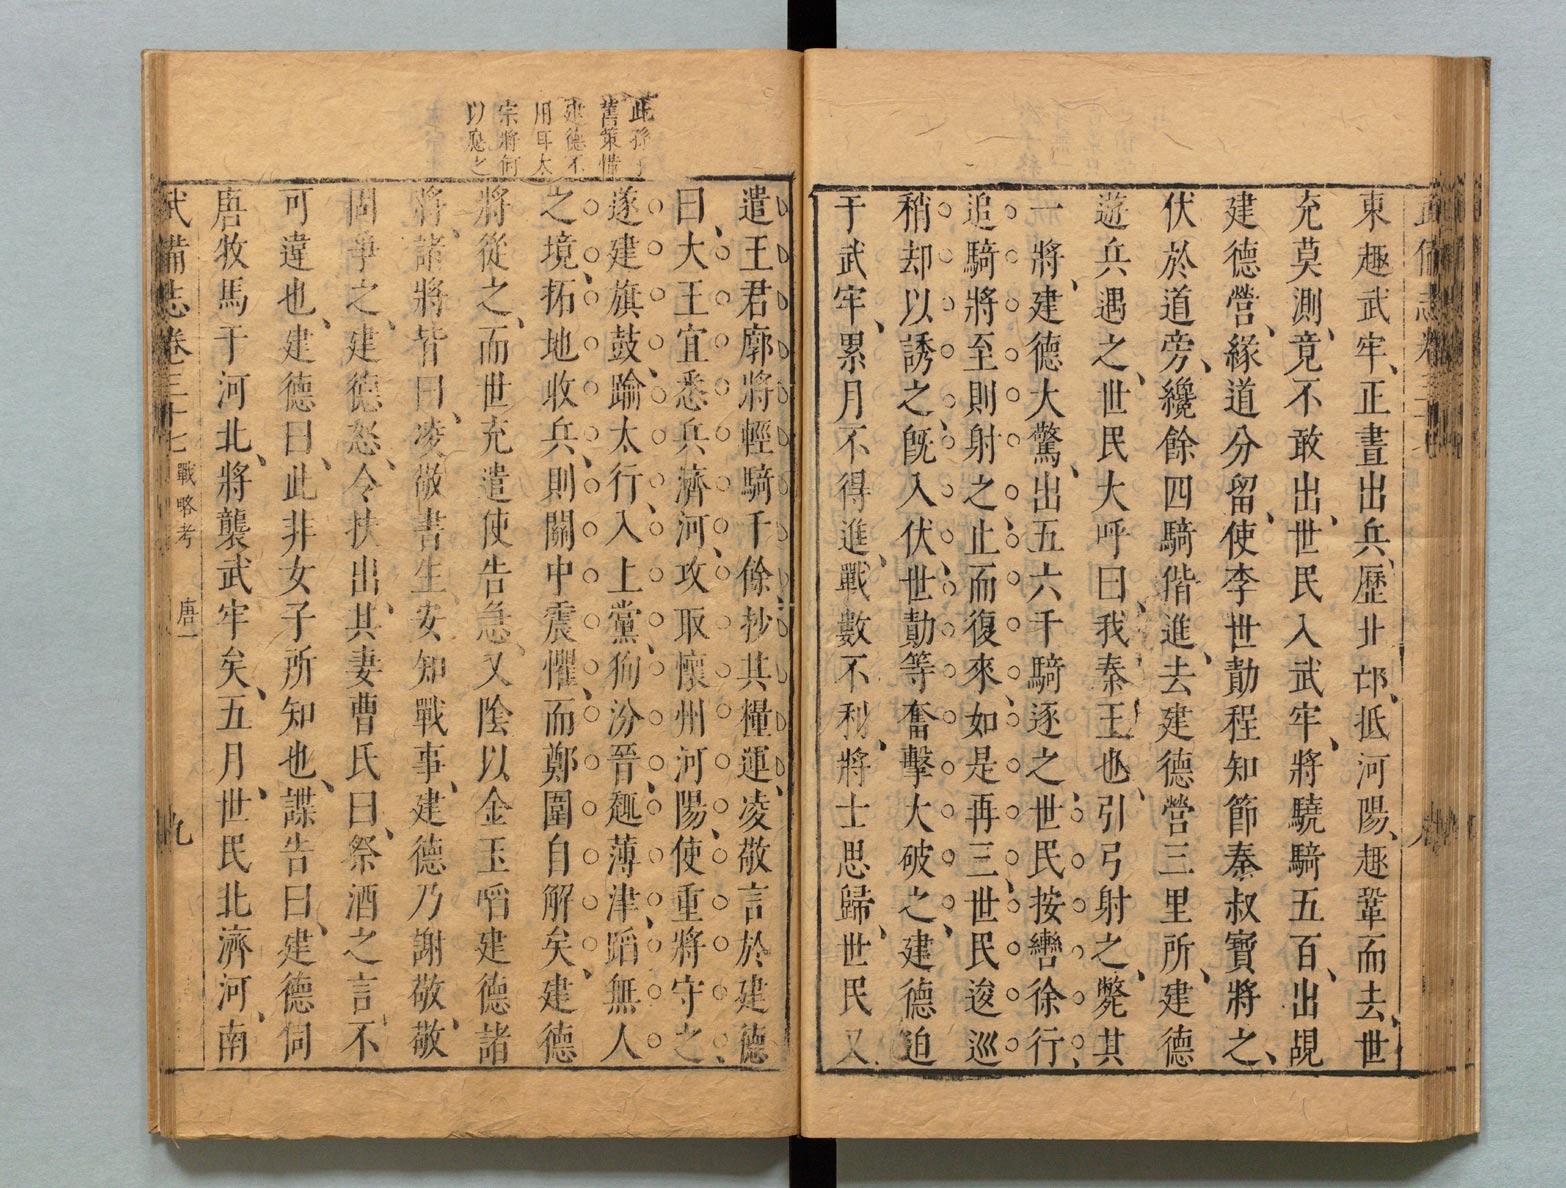 東趣武牢正晝出兵歷北邙抵河陽趣鞏而去世
充莫測竟不敢出世民入武牢將驍騎五百出覘
建德營緣道分留使李世勣程知節秦叔寶將之
伏於道旁纔餘四騎偕進去建德營三里所建德
遊兵遇之世民大呼曰我秦王也引弓射之斃其
一將建德大驚出五六千騎逐之世民按轡徐行
追騎將至則射之止而復來如是再三世民逡巡
稍却以誘之旣入伏世勣等奮擊大破之建德迫
于武牢累月不得進戰數不利將士思歸世民又
遣王君廓將輕騎千餘抄其糧運凌敬言於建德
曰大王宜悉兵濟河攻取懷州河陽使重將守之
遂建旗鼓踰太行入上黨狥汾晉趣薄津蹈無人
之境拓地收兵則關中震懼而鄭圍自解矣建德
將從之而世充遣使告急又陰以金玉啗建德諸
將諸將皆曰凌敬書生安知戰事建德乃謝敬敬
固爭之建德怒令扶出其妻曹氏曰祭酒之言不
可違也建德曰此非女子所知也諜告曰建德伺
唐牧馬于河北將襲武牢矣五月世民北濟河南
此孫子
舊策惜
建德不
用耳太
宗將何
以應之
武備志卷三十七 戰略考 唐一 九